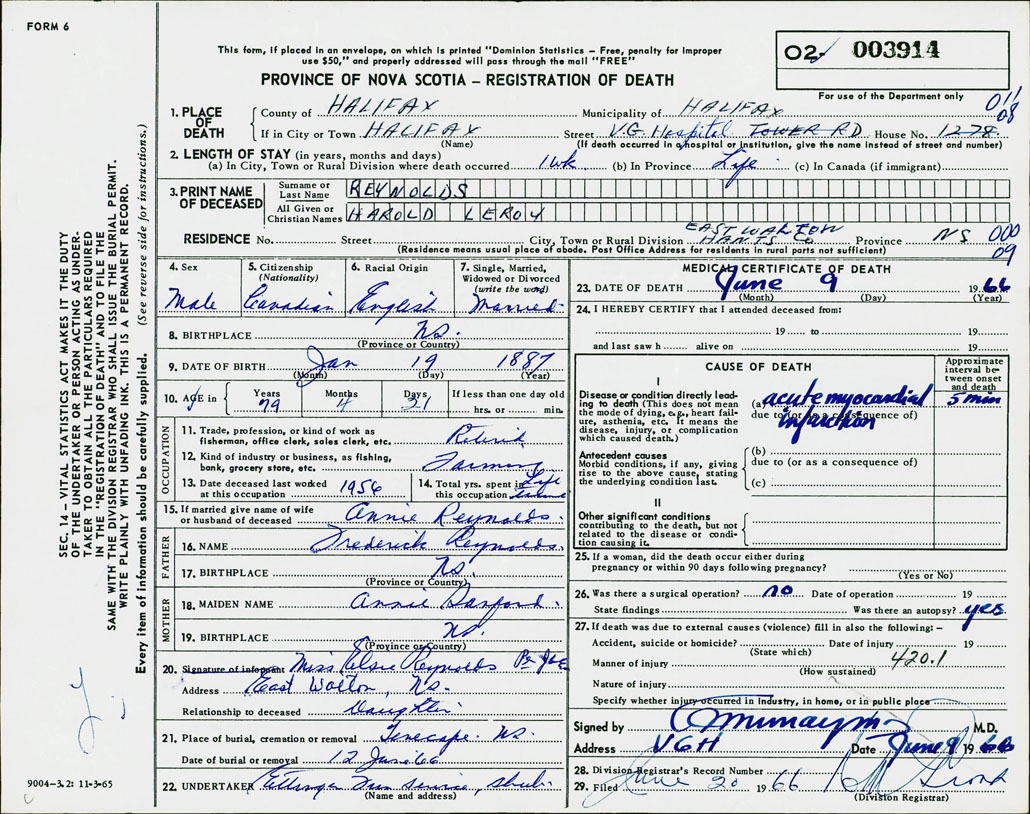 FORM 6
This form, if placed in an envelope, on which is printed "Dominion Statistics – Free, penalty for improper
use $50," and properly addressed will pass through the mail "FREE"
PROVINCE OF NOVA SCOTIA – REGISTRATION OF DEATH
02- 003914
For use of the Department only
011
08
1. PLACE OF DEATH
County of HALIFAX Municipality of HALIFAX
If in City or Town HALIFAX Street V.G. Hospital TOWER RD House No. 1278
(Name) (If death occurred in a hospital or institution, give the name instead of street and number)
2. LENGTH OF STAY (in years, months and days)
(a) In City, Town or Rural Division where death occurred 1 wk (b) In Province Life (c) In Canada (if immigrant)
3. PRINT NAME OF DECEASED
Surname or Last Name REYNOLDS
All Given or Christian Names HAROLD LEROY
RESIDENCE No. Street City, Town or Rural Division EAST WALTON HANTS Co Province NS 000
09
(Residence means usual place of abode. Post Office Address for residents in rural parts not sufficient)
4. Sex Male
5. Citizenship (Nationality) Canadian
6. Racial Origin English
7. Single, Married, Widowed or Divorced (write the word) Married
8. BIRTHPLACE NS.
(Province or Country)
9. DATE OF BIRTH Jan 19 1887
(Month) (Day) (Year)
10. AGE in Years 79 Months 4 Days 21 If less than one day old hrs. or min.
OCCUPATION
11. Trade, profession, or kind of work as fisherman, office clerk, sales clerk, etc. Retired
12. Kind of industry or business, as fishing, bank, grocery store, etc. Farming
13. Date deceased last worked at this occupation 1956
14. Total yrs. spent in this occupation Life
15. If married give name of wife or husband of deceased Annie Reynolds.
FATHER
16. NAME Frederick Reynolds.
17. BIRTHPLACE NS.
(Province or Country)
MOTHER
18. MAIDEN NAME Annie Sanford.
19. BIRTHPLACE NS.
(Province or Country)
20. Signature of informant Miss Elsie Reynolds Per
Address East Walton, NS.
Relationship to deceased Daughter
21. Place of burial, cremation or removal Tenecape. NS.
Date of burial or removal 12 June 66
22. UNDERTAKER Ettinger Fun Service, Shub.
(Name and address)
MEDICAL CERTIFICATE OF DEATH
23. DATE OF DEATH June 9 1966
(Month) (Day) (Year)
24. I HEREBY CERTIFY that I attended deceased from:
19 to 19
and last saw h alive on 19
CAUSE OF DEATH
Approximate interval between onset and death
I
Disease or condition directly leading to death (This does not mean the mode of dying, e.g., heart failure, asthenia, etc. It means the disease, injury, or complication which caused death.)
(a) acute myocardial infarction 5 min
due to (or as a consequence of)
Antecedent causes
Morbid conditions, if any, giving rise to the above cause, stating the underlying condition last.
(b)
due to (or as a consequence of)
(c)
II
Other significant conditions
contributing to the death, but not related to the disease or condition causing it.
25. If a woman, did the death occur either during pregnancy or within 90 days following pregnancy?
(Yes or No)
26. Was there a surgical operation? no Date of operation 19
State findings Was there an autopsy? yes
27. If death was due to external causes (violence) fill in also the following: –
Accident, suicide or homicide? Date of injury 19
(State which)
Manner of injury 420.1
(How sustained)
Nature of injury
Specify whether injury occurred in industry, in home, or in public place
Signed by M.D.
Address VGH Date June 9 1966
28. Division Registrar's Record Number
29. Filed June 20 1966
(Division Registrar)
SEC. 14 – VITAL STATISTICS ACT MAKES IT THE DUTY
OF THE UNDERTAKER OR PERSON ACTING AS UNDER-
TAKER TO OBTAIN ALL THE PARTICULARS REQUIRED
IN THE "REGISTRATION OF DEATH" AND TO FILE THE
SAME WITH THE DIVISION REGISTRAR WHO SHALL ISSUE THE BURIAL PERMIT.
WRITE PLAINLY WITH UNFADING INK. THIS IS A PERMANENT RECORD.
Every item of information should be carefully supplied. (See reverse side for instructions.)
9004-3.2: 11-3-65